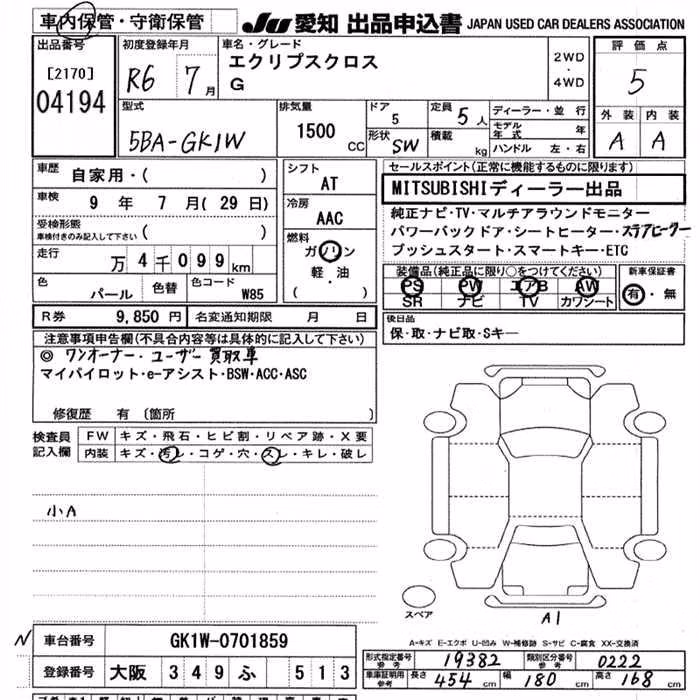 車内保管・守衛保管 JU 愛知 出品申込書 JAPAN USED CAR DEALERS ASSOCIATION
出品番号 [2170] 04194
初度登録年月 R6 7月
車名・グレード エクリプスクロス G
2WD・4WD
評価点 5
外装 A 内装 A
型式 5BA-GK1W
排気量 1500 CC
ドア 5 定員 5人
形状 SW 積載 kg
ディーラー・並行
モデル年式 年
ハンドル 左・右
車歴 自家用・( )
車検 9年 7月(29日)
受検形態 車検付きのみ記入して下さい ( )
走行 万4千099km
色 パール 色替 色コード W85
シフト AT
冷房 AAC
燃料 ガソリン 軽・油 ( )
セールスポイント(正常に機能するものに限ります)
MITSUBISHIディーラー出品
純正ナビ・TV・マルチアラウンドモニター
パワーバックドア・シートヒーター・ステアヒーター
プッシュスタート・スマートキー・ETC
装備品(純正品に限り○をつけてください)
PS PW エアB AW
SR ナビ TV カワシート
新車保証書 有・無
R券 9,850円 名変通知期限 月 日
後日品
保・取・ナビ取・Sキー
注意事項申告欄(不具合内容等は具体的に記入して下さい)
◎ワンオーナー・ユーザー買取車
マイパイロット・e-アシスト・BSW・ACC・ASC
修復歴 有 (箇所 )
検査員記入欄
FW キズ・飛石・ヒビ割・リペア跡・X要
内装 キズ・汚レ・コゲ・穴・スレ・キレ・破レ
小A
スペア
A1
N 車台番号 GK1W-0701859
登録番号 大阪 349 ふ 513
A-キズ E-エクボ U-凹み W-補修跡 S-サビ C-腐食 XX-交換済
形式指定番号 参考 19382 類別区分番号 参考 0222
車庫証明用 参考 長さ 454 cm 幅 180 cm 高さ 168 cm